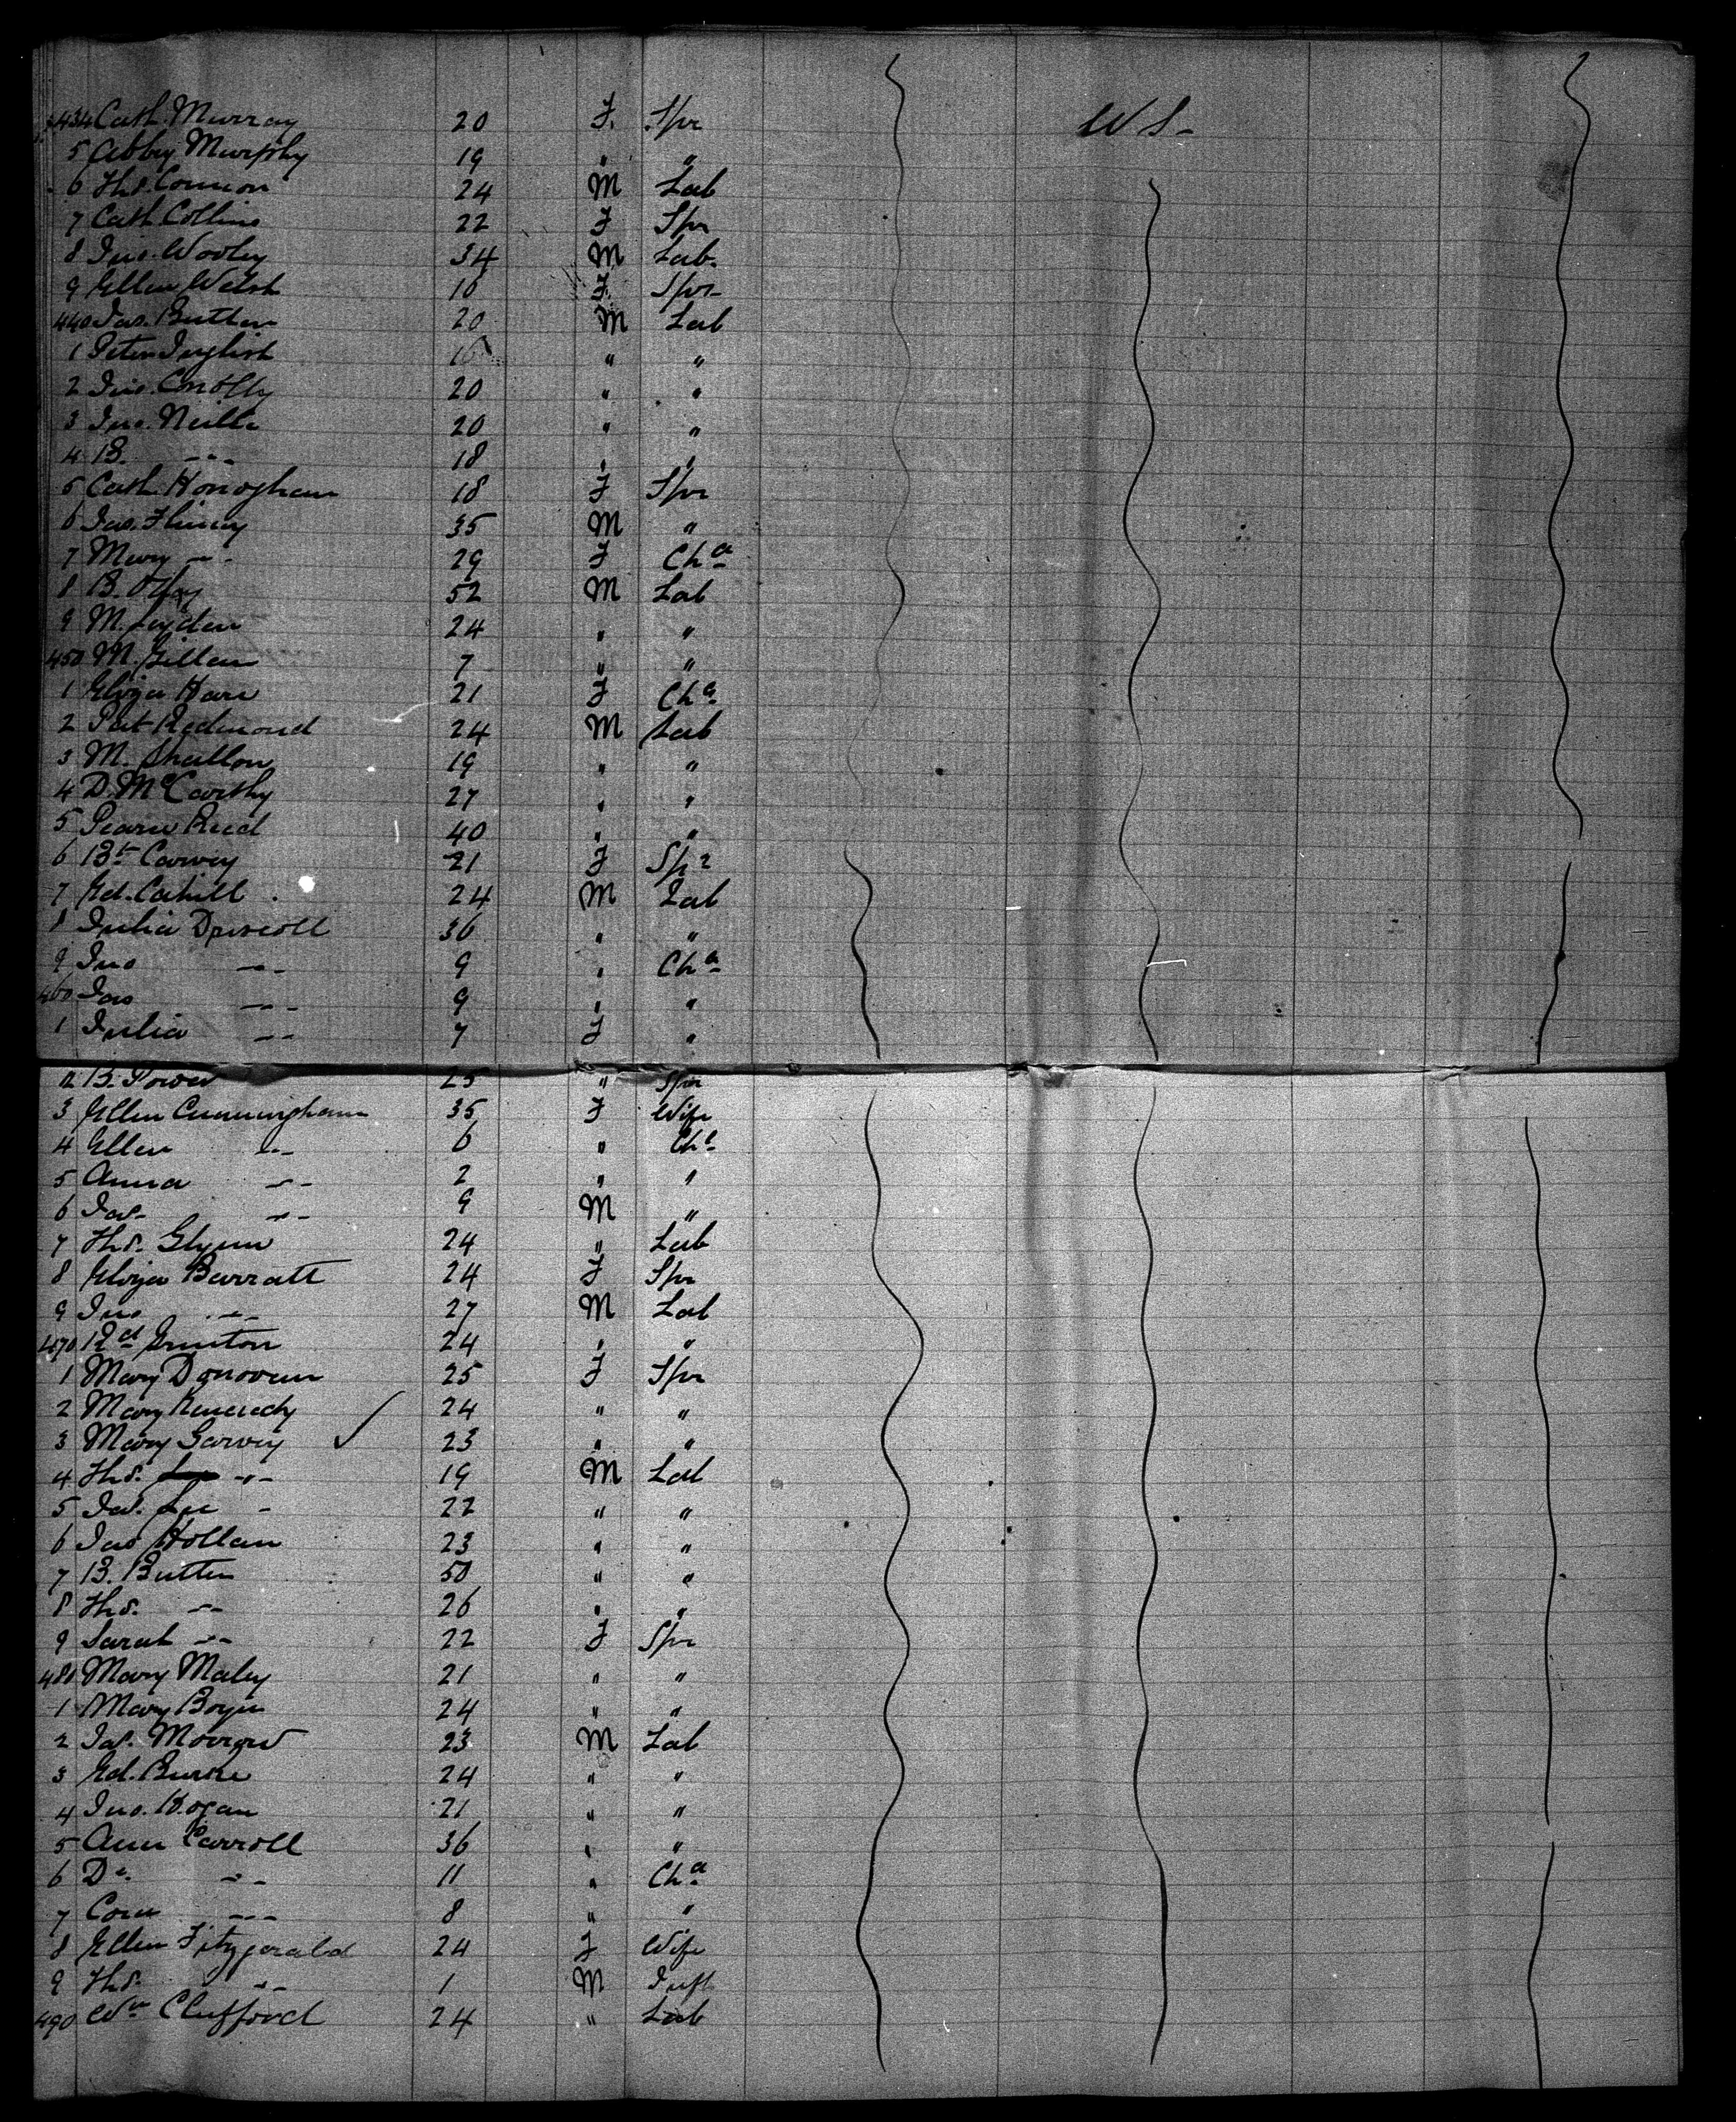 434 Cath. Murray 20 F. Spr W S-
5 Abby Murphy 19 " "
6 Ths. Connon 24 M Lab
7 Cath Collins 22 F Spr
8 Jno. Wooley 34 M Lab.
9 Ellen Welsh 16 F. Spr-
440 Jas. Butler 20 M Lab
1 Peter Inglish 16 " "
2 Jno. Conolly 20 " "
3 Jno. Neill 20 " "
4 B. -"- 18 " "
5 Cath Honoghan 18 F Spr
6 Jas. 35 M "
7 Mary -"- 29 F Cha
8 B. 52 M Lab
9 M. Leyden 24 " "
450 M. Gillan 7 " "
1 Eliza Hare 21 F Cha
2 Pat Redmond 24 M Lab
3 M. Shallon 19 " "
4 D. McCarthy 27 " "
5 Pearse Reed 40 " "
6 Bt. 21 F Spr
7 Ed. Cahill 24 M Lab
8 Julia Driscoll 36 " "
9 Jno -"- 9 " Cha
460 Jas -"- 9 " "
1 Julia -"- 7 F "
2 B. Power 25 " Spr
3 Ellen Cunningham 35 F Wife
4 Ellen -"- 6 " Cha
5 Anna -"- 2 " "
6 Jas. -"- 9 M "
7 Ths. Glynn 24 " Lab
8 Eliza Barratt 24 F Spr
9 Jno -"- 27 M Lab
470 Rd. 24 " "
1 Mary Donovan 25 F Spr
2 Mary Kennedy 24 " "
3 Mary Garvey 23 " "
4 Ths. -"- 19 M Lab
5 Jas. Lee - 22 " "
6 Jas Hollan 23 " "
7 B. Butler 50 " "
8 Ths. -"- 26 " "
9 Sarah -"- 22 F Spr
480 Mary Maley 21 " "
1 Mary Boyle 24 " "
2 Jas. 23 M Lab
3 Ed. Burke 24 " "
4 Jno. Hogan 21 " "
5 Ann Carroll 36 " "
6 Dl. -"- 11 " Cha
7 Corn -"- 8 " "
8 Ellen Fitzgerald 24 F Wife
9 Ths. -"- 1 M Inft
490 Wm Clifford 24 " Lab